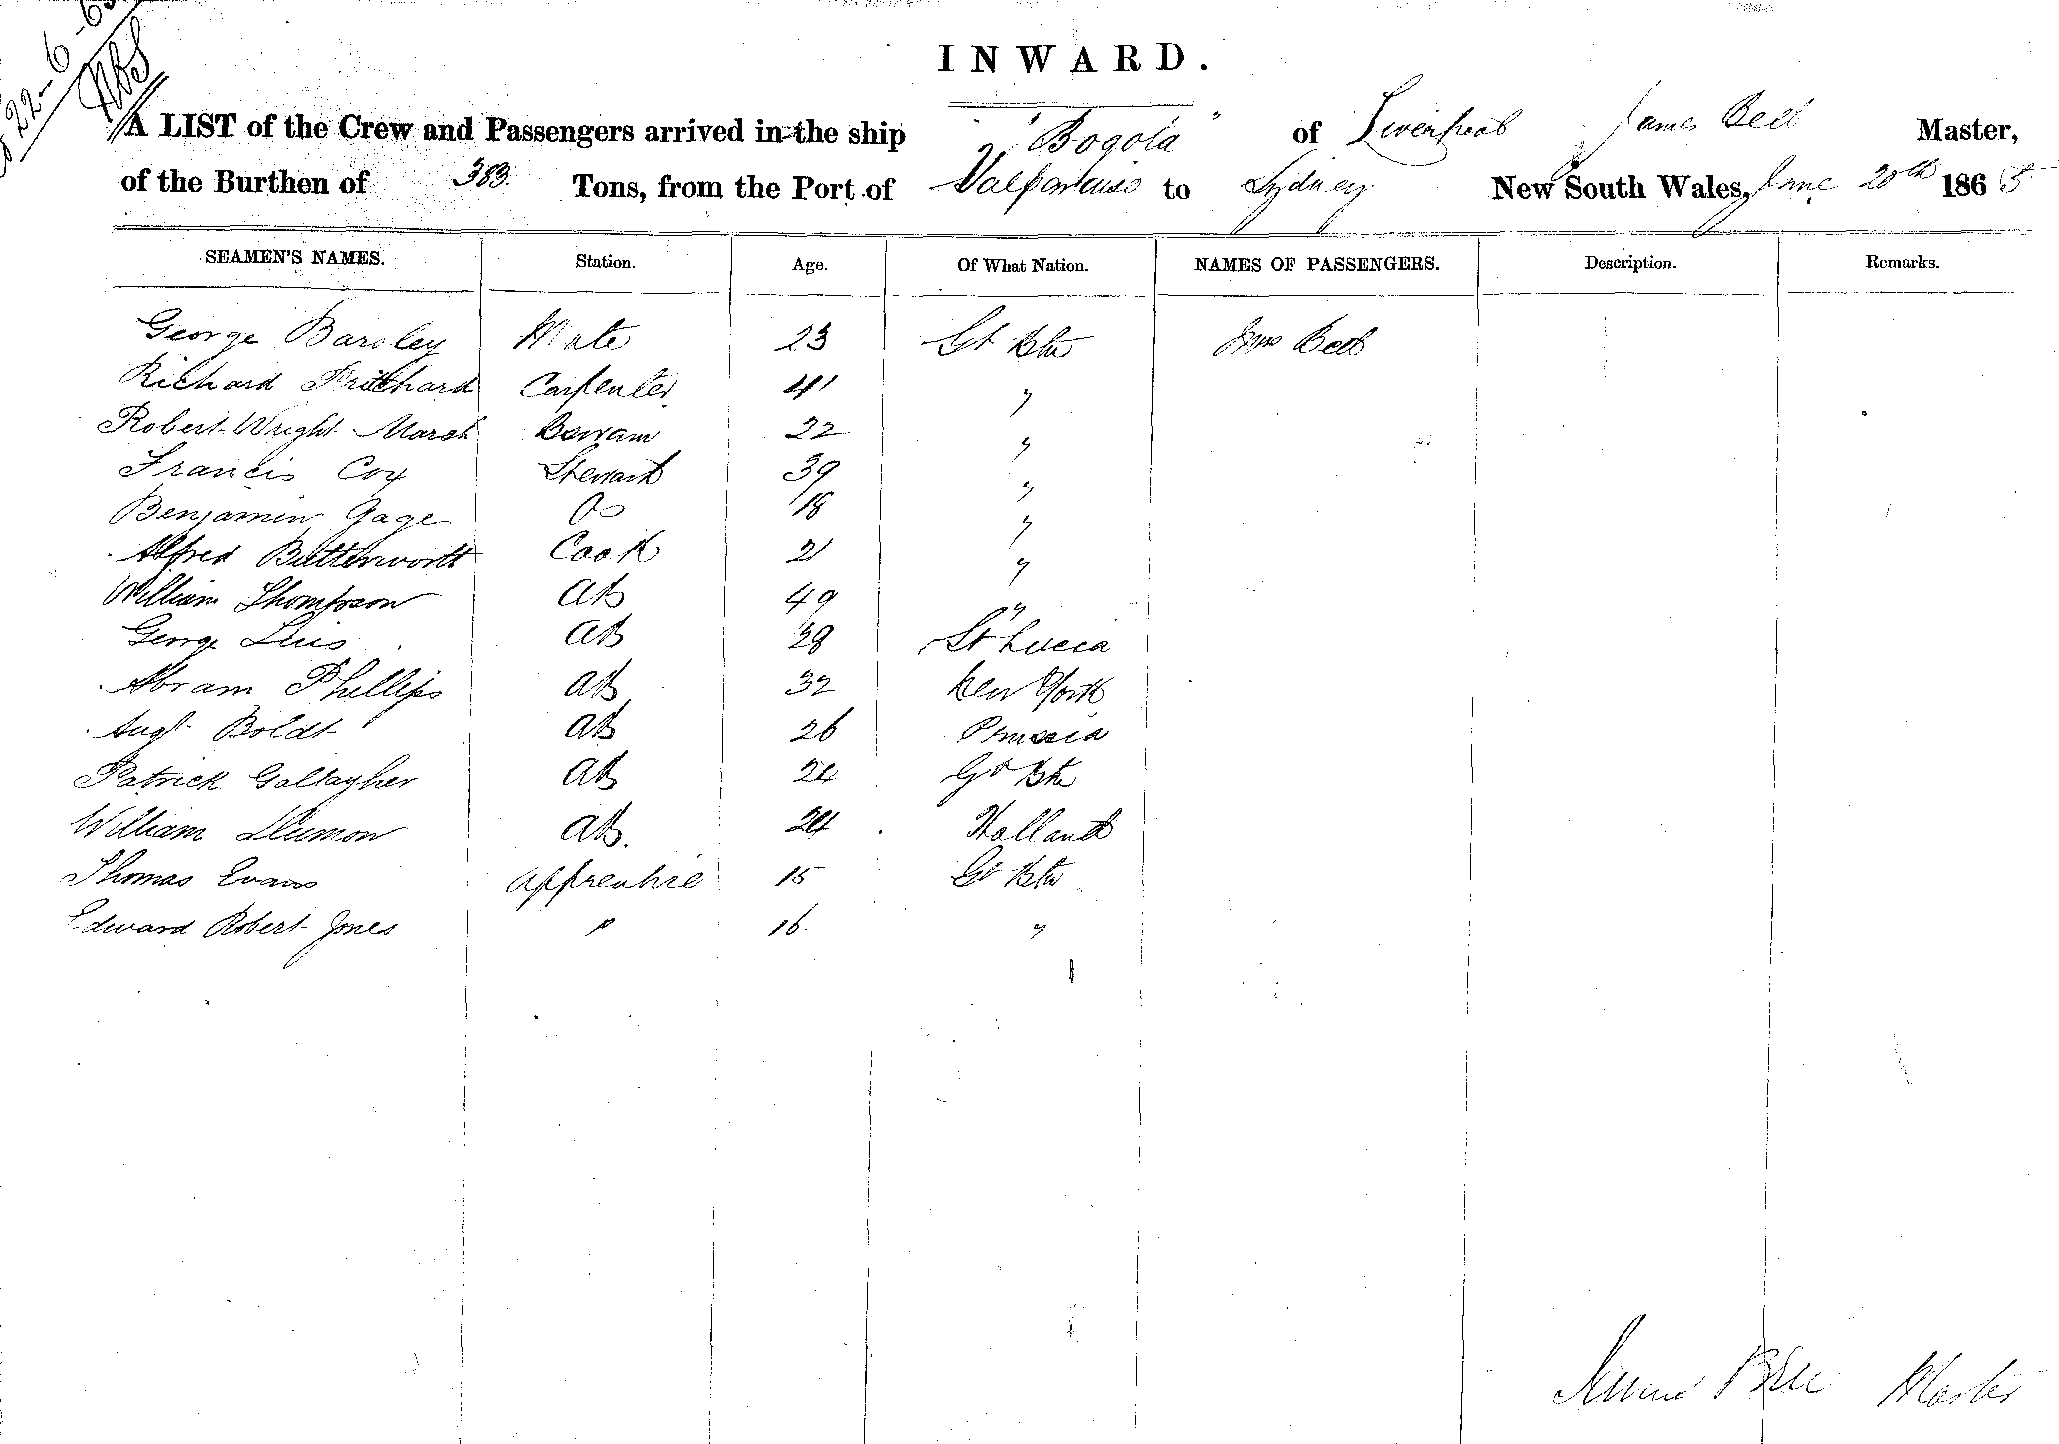 22-6-65
INWARD.
A LIST of the Crew and Passengers arrived in the ship "Bogota" of Liverpool James Bell Master,
of the Burthen of 383 Tons, from the Port of Valparaiso to Sydney New South Wales, June 20th 1865
SEAMEN'S NAMES. Station. Age. Of What Nation. NAMES OF PASSENGERS. Description. Remarks.
George Barsley Mate 23 Gt Btn Mrs Bell
Richard Pritchard Carpenter 41 "
Robert Wright Marsh Boswain 22 "
Francis Coy Steward 39 "
Benjamin Gage 18 "
Alfred Butterworth Cook 21 "
William Thompson AB 49 "
George AB 28 St Lucia
Abram Phillips AB 32 New York
Augt Boldt AB 26 Prussia
Patrick Gallagher AB 24 Gt Btn
William AB. 24 Holland
Thomas Evans Apprentice 15 Gt Btn
Edward Robert Jones " 16 "
James Bell Master